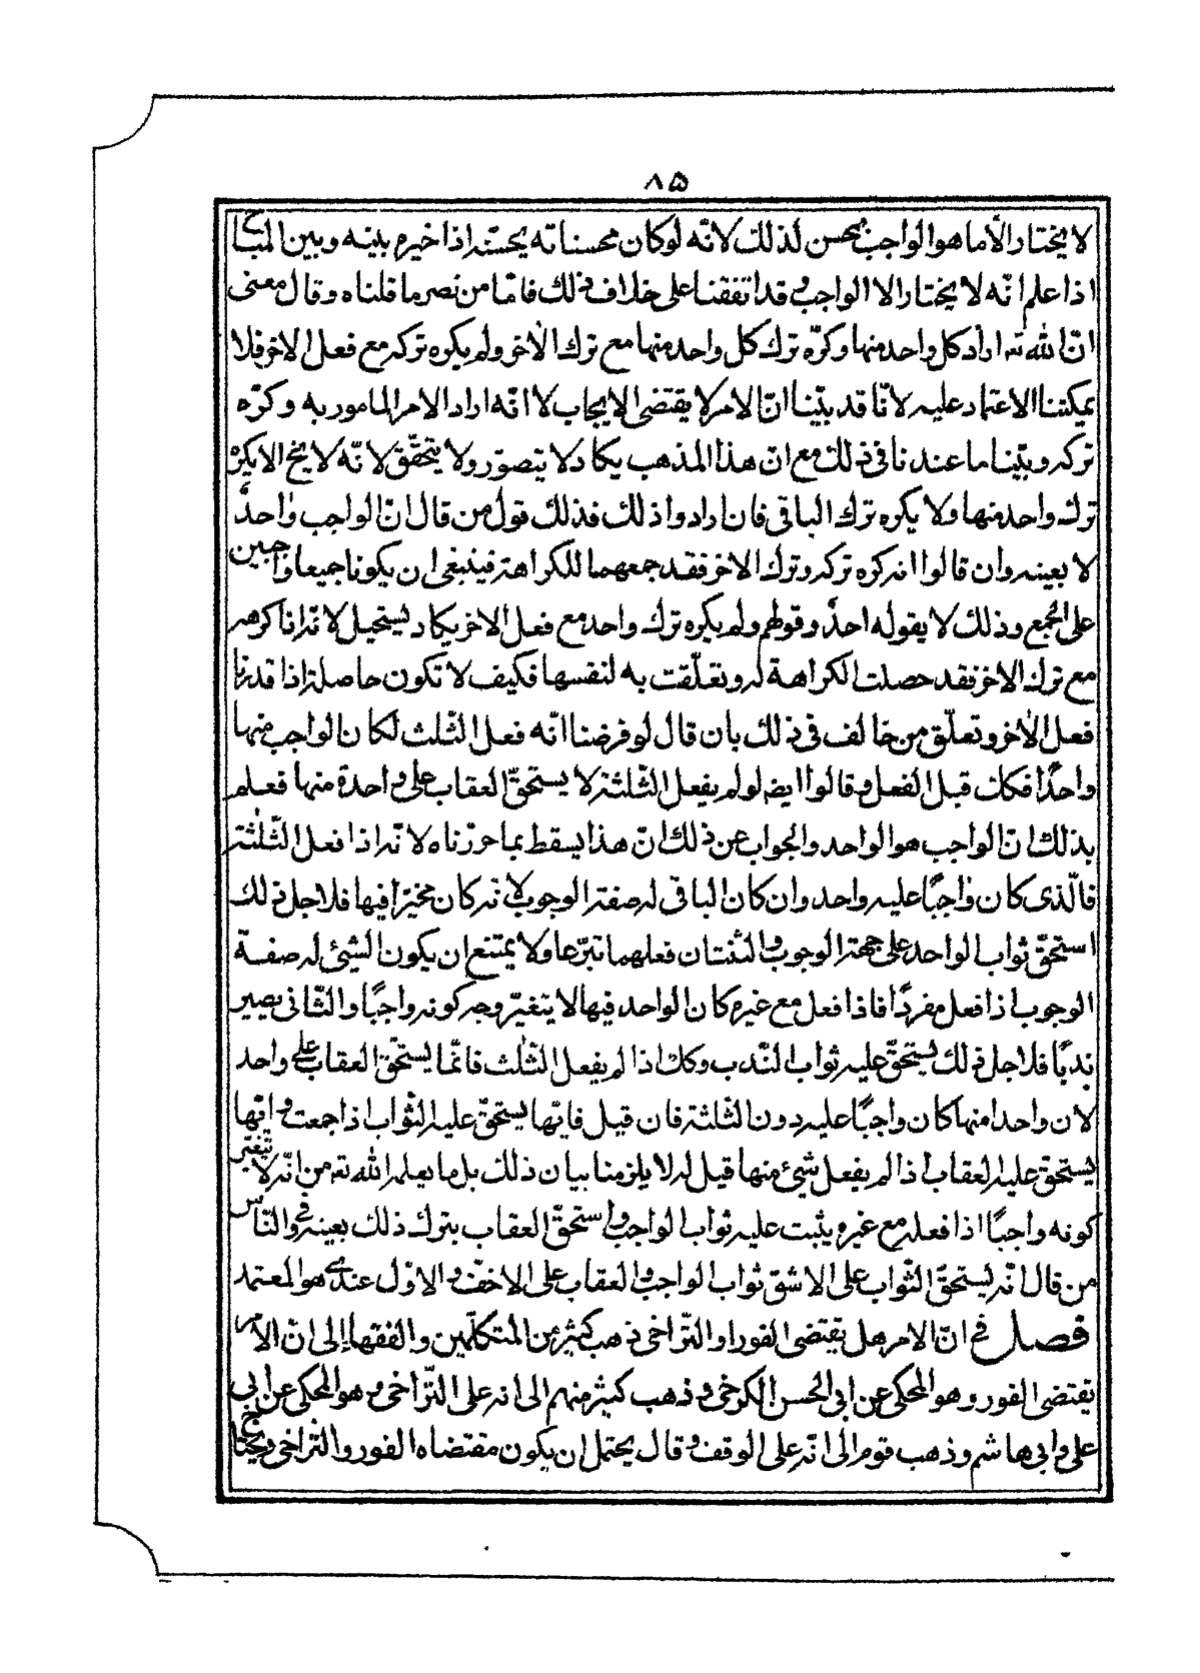 ۸۵
لا يختار الا ما هو الواجب يحسن لذلك لانّه لو كان محسنا ته يحسّنه اذا خيره بينه وبين المباح
اذا علم انّه لا يختار الا الواجب وقد اتفقنا على خلاف ذلك فامّا من نصر ما قلناه وقال معنى
انّ الله تعه اراد كل واحد منها وكرّه ترك كل واحد منها مع ترك الاخر ولم يكره تركه مع فعل الاخر فلا
يمكننا الاعتماد عليه لانّا قد بيّنا انّ الامر لا يقتضى الايجاب لا انّه اراد الامر المامور به وكرّه
تركه وبيّنا ما عندنا في ذلك مع انّ هذا المذهب يكاد لا يتصوّر ولا يتحقّق لانّه لا يخ الا يكره
ترك واحد منها ولا يكره ترك الباقي فان ارادوا ذلك فذلك قول من قال انّ الواجب واحدٌ
لا بعينه وان قالوا انه كره تركه وترك الاخر فقد جمعهما للكراهة فينبغى ان يكونا جميعا واجبين
على الجمع وذلك لا يقوله احدٌ وقولهم ولم يكره ترك واحد مع فعل الاخر يكاد يستحيل لانّه اذا كرهه
مع ترك الاخر فقد حصلت الكراهة له وتعلّقت به لنفسها فكيف لا تكون حاصلة اذا قدرنا
فعل الاخر وتعلّق من خالف في ذلك بان قال لو فرضنا انّه فعل الثّلث لكان الواجب منها
واحدًا فكك قبل الفعل وقالوا ايضه لو لم يفعل الثّلثة لا يستحقّ العقاب على واحدة منها فعلم
بذلك انّ الواجب هو الواحد والجواب عن ذلك انّ هذا يسقط بما حرّرناه لانّه اذا فعل الثّلثة
فالّذى كان واجبًا عليه واحد وان كان الباقى له صفة الوجوب لانّه كان مخيّرا فيها فلاجل ذلك
استحقّ ثواب الواحد على جهة الوجوب والثنتان فعلهما تبرّعا ولا يمتنع ان يكون الشيئ له صفة
الوجوب اذا فعل مفردًا فاذا فعل مع غيره كان الواحد فيها لا يتغيّر وجه كونه واجبًا والثّانى يصير
ندبًا فلاجل ذلك يستحقّ عليه ثواب النّدب وكك اذا لم يفعل الثّلث فانّما يستحقّ العقاب على واحد
لان واحدا منها كان واجبًا عليه دون الثلثة فان قيل فايّها يستحقّ عليه الثّواب اذا جمعت وايّها
يستحقّ عليه العقاب اذا لم يفعل شيئ منها قيل له لا يلزمنا بيان ذلك بل ما يعلمه الله تعه من انّه لا يتغيّر
كونه واجبًا اذا فعله مع غيره يثبت عليه ثواب الواجب واستحقّ العقاب بترك ذلك بعينه وفي النّاس
من قال انّه يستحقّ الثّواب على الاشقّ ثواب الواجب والعقاب على الاخفّ والاوّل عندى هو المعتمد
فصل في انّ الامر هل يقتضى الفور او التّراخى ذهب كثير من المتكلّمين والفقهاء الى انّ الامر
يقتضى الفور وهو المحكى عن ابى الحسن الكرخى وذهب كثير منهم الى انه على التّراخى وهو المحكى عن ابى
على وابى هاشم وذهب قوم الى انّه على الوقف وقال يحتمل ان يكون مقتضاه الفور والتّراخى ويحتاج